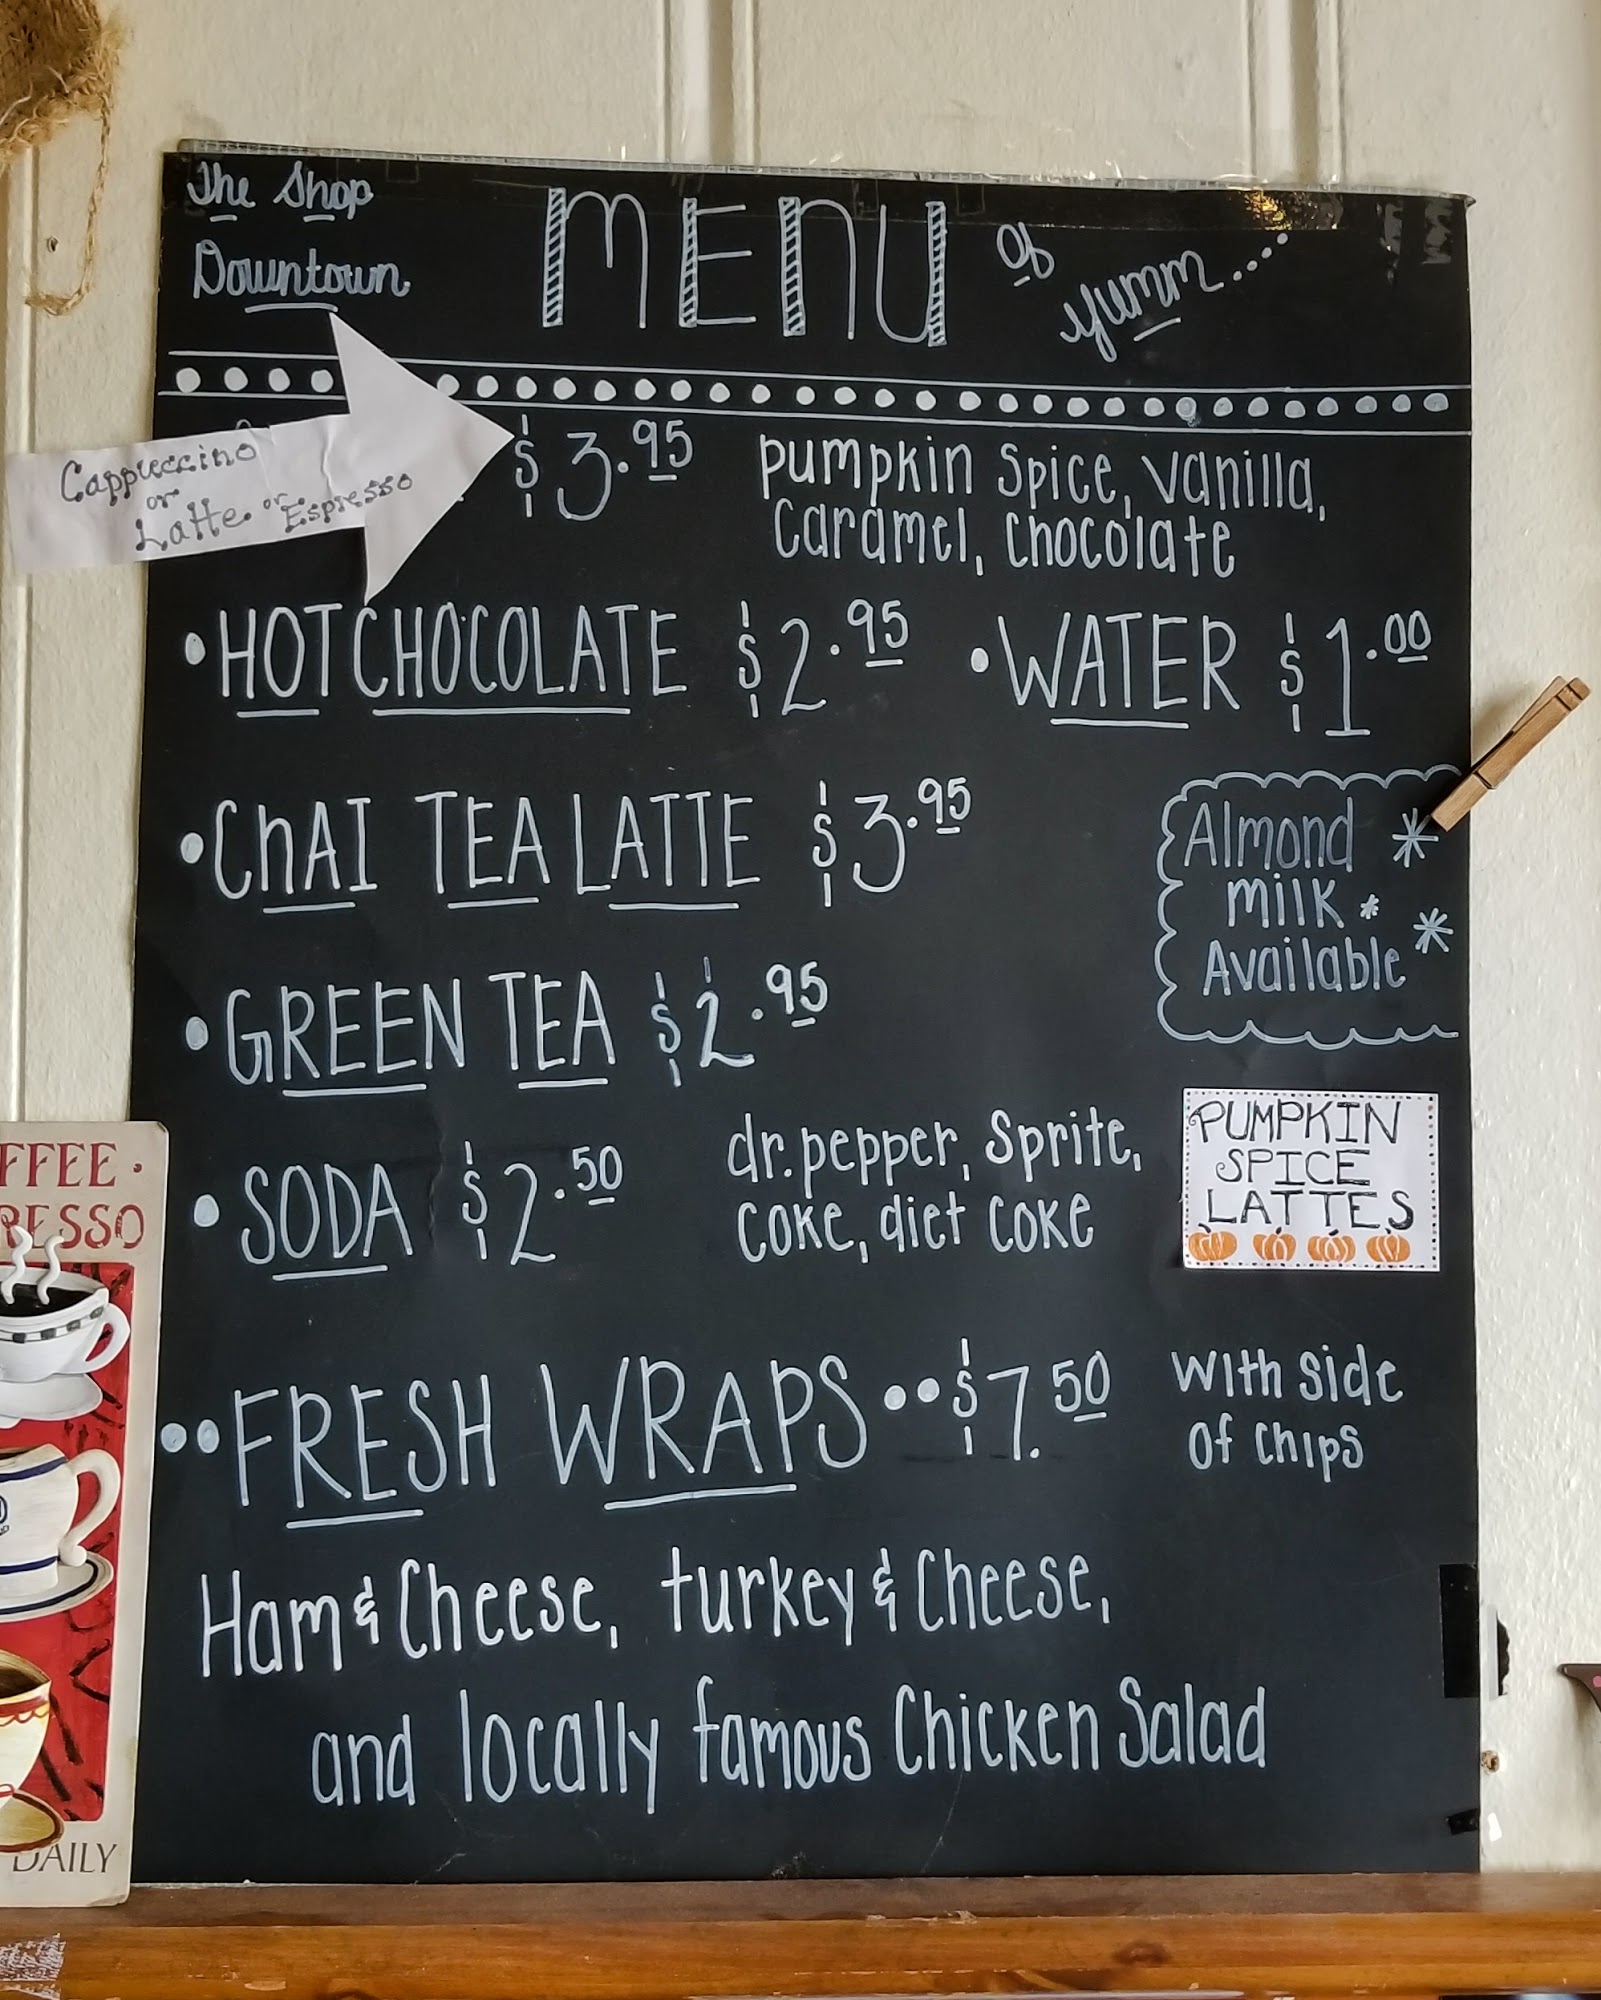 The Shop
Downtown
MENU of
yumm....
Cappuccino
or
Latte or Espresso
$3.95
pumpkin spice, vanilla,
caramel, chocolate
•HOT CHOCOLATE $2.95 •WATER $1.00
•ChAI TEA LATTE $3.95
Almond
milk
Available
•GREEN TEA $2.95
•SODA $2.50
dr. pepper, Sprite,
coke, diet coke
PUMPKIN
SPICE
LATTES
••FRESH WRAPS••$7.50
with side
of chips
Ham & Cheese, turkey & Cheese,
and locally famous Chicken Salad
FFEE •
RESSO
DAILY